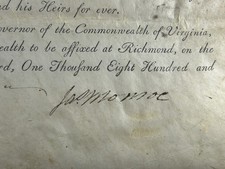 nd his Heirs for ever.
overnor of the Commonwealth of Virginia,
ealth to be affixed at Richmond, on the
rd, One Thousand Eight Hundred and
Jas. Monroe